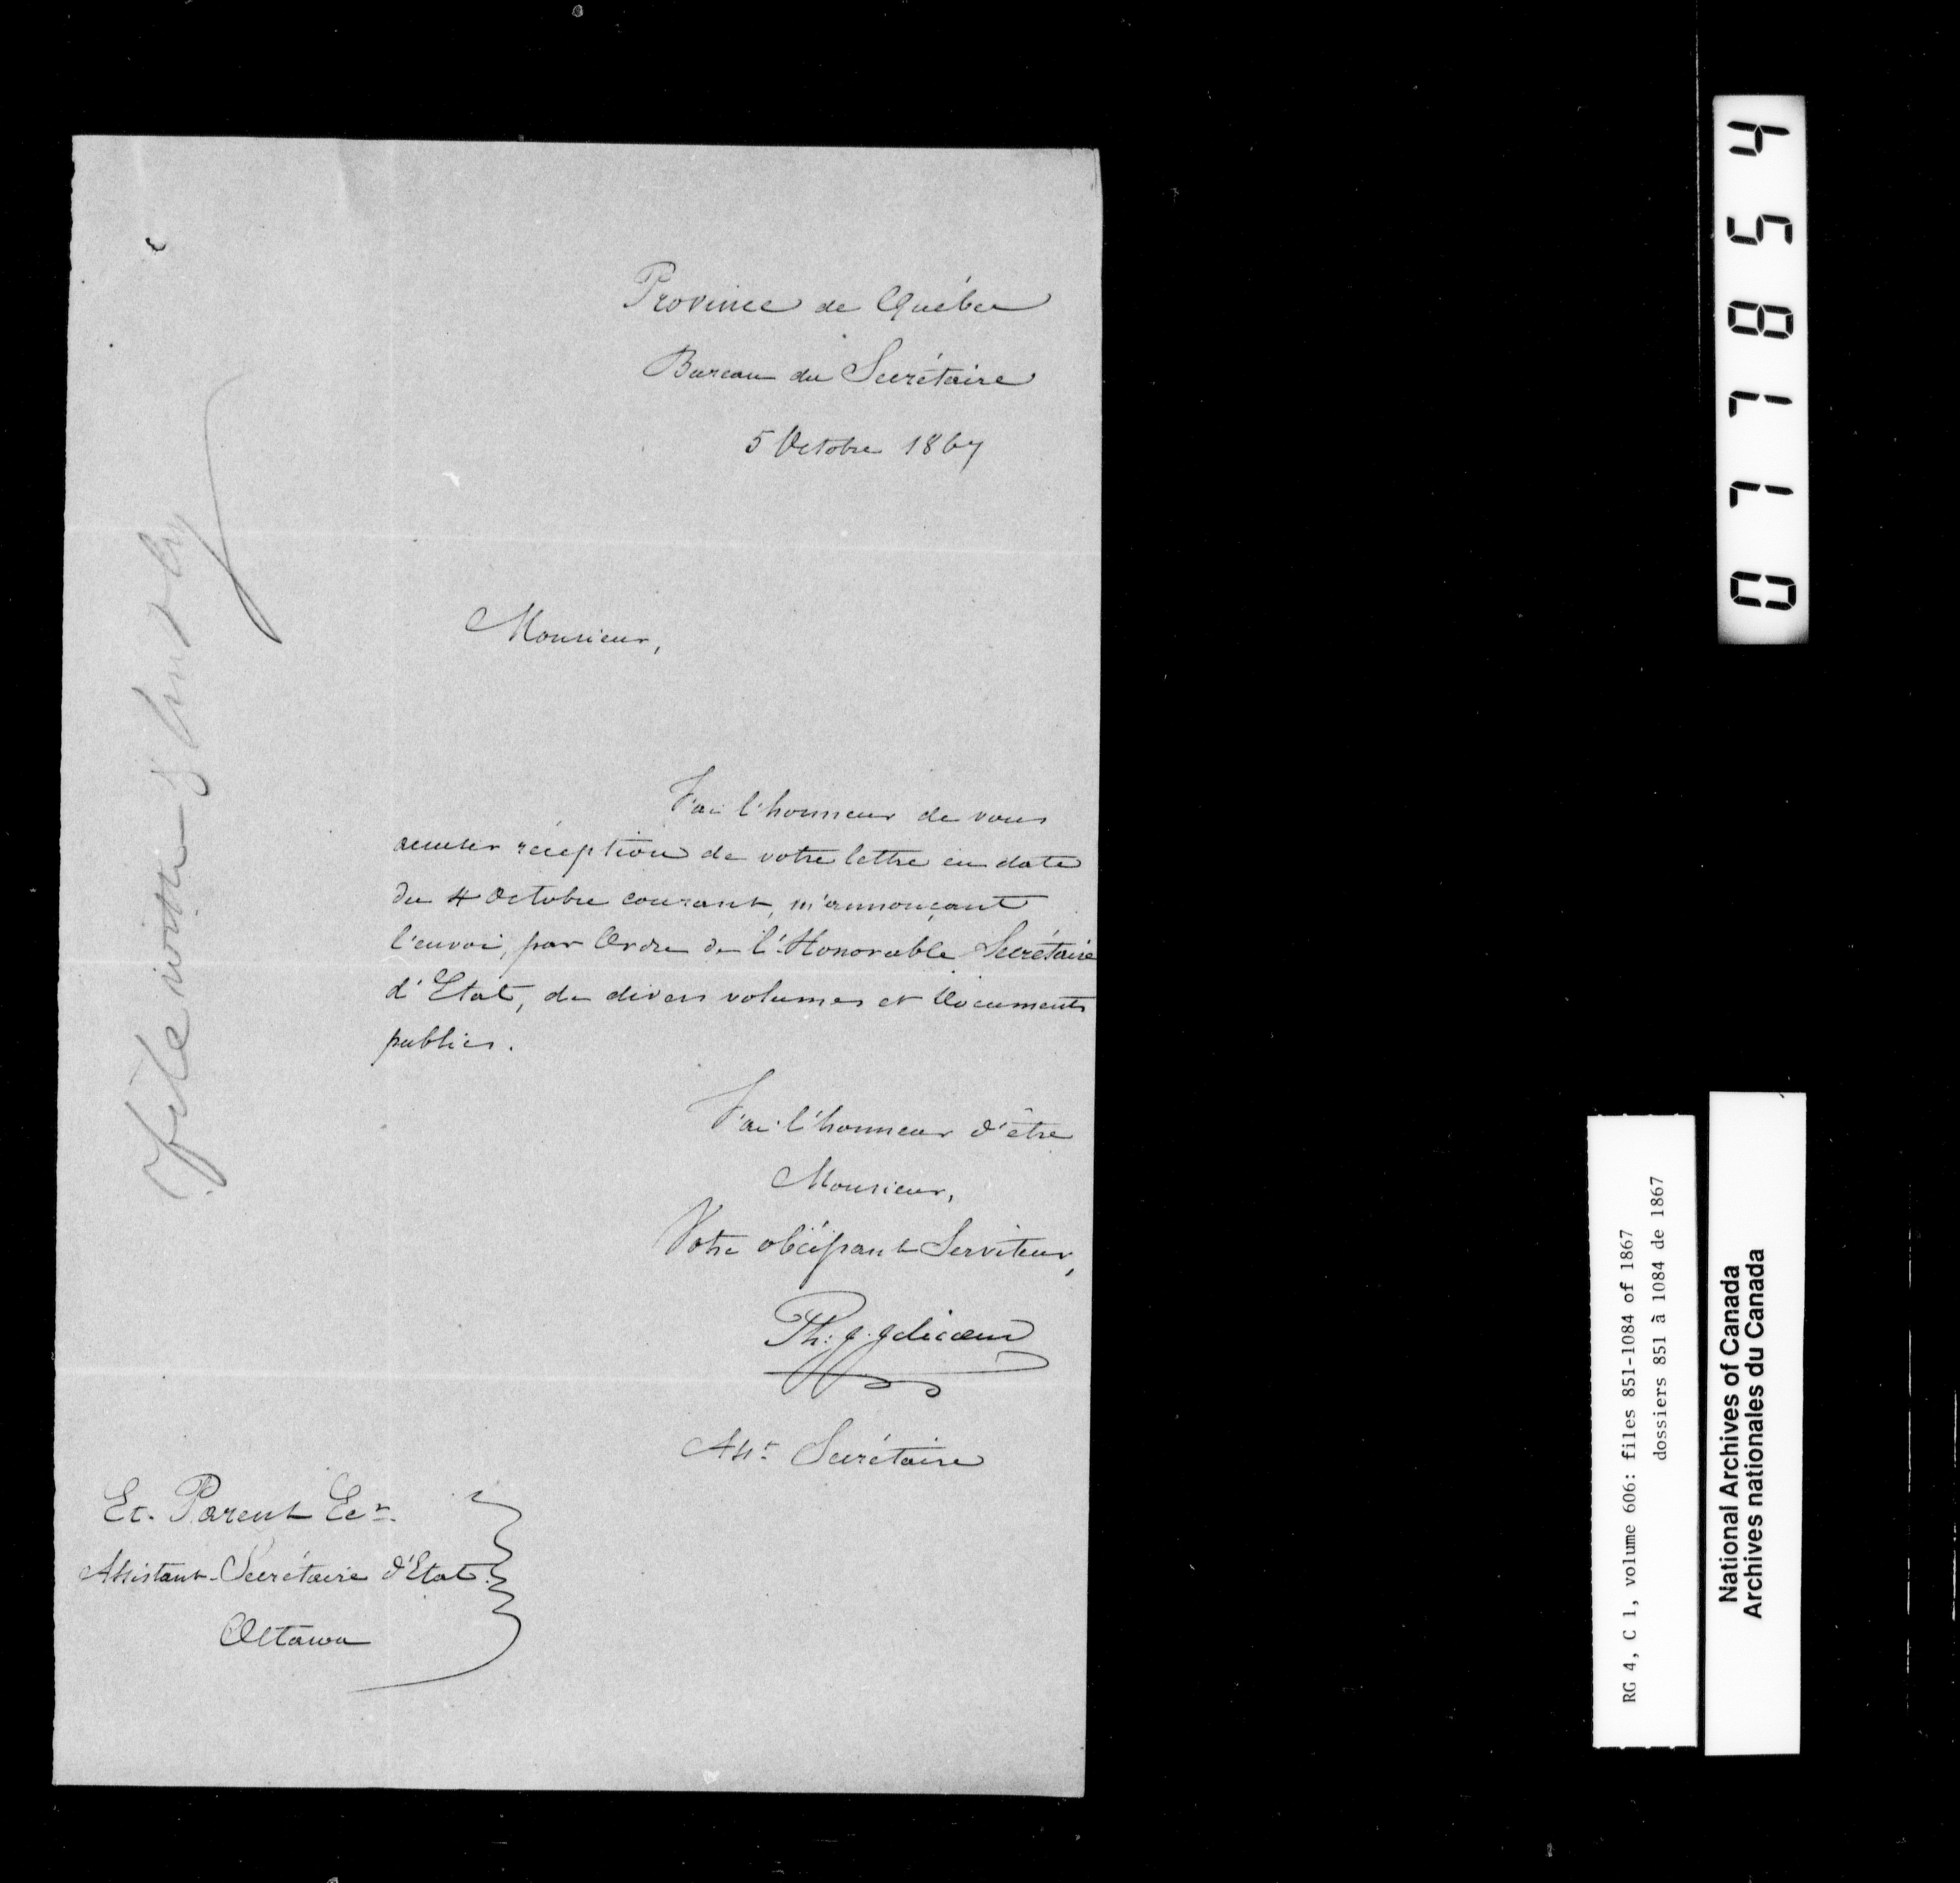 Province de Québec
Bureau du Secrétaire
5 Octobre 1867
Monsieur,
J'ai l'honneur de vous
accuser réception de votre lettre en date
du 4 Octobre courant, m'annonçant
l'envoi, par Ordre de l'Honorable Secrétaire
d'Etat, de divers volumes et Documents
publics.
J'ai l'honneur d'être
Monsieur,
Votre obéissant Serviteur,
Th: J. Jolicoeur
Asst. Secrétaire
Et. Parent Ecr.
Assistant-Secrétaire d'Etat
Ottawa
File with
077854
RG 4, C 1, volume 606: files 851-1084 of 1867
dossiers 851 à 1084 de 1867
National Archives of Canada
Archives nationales du Canada